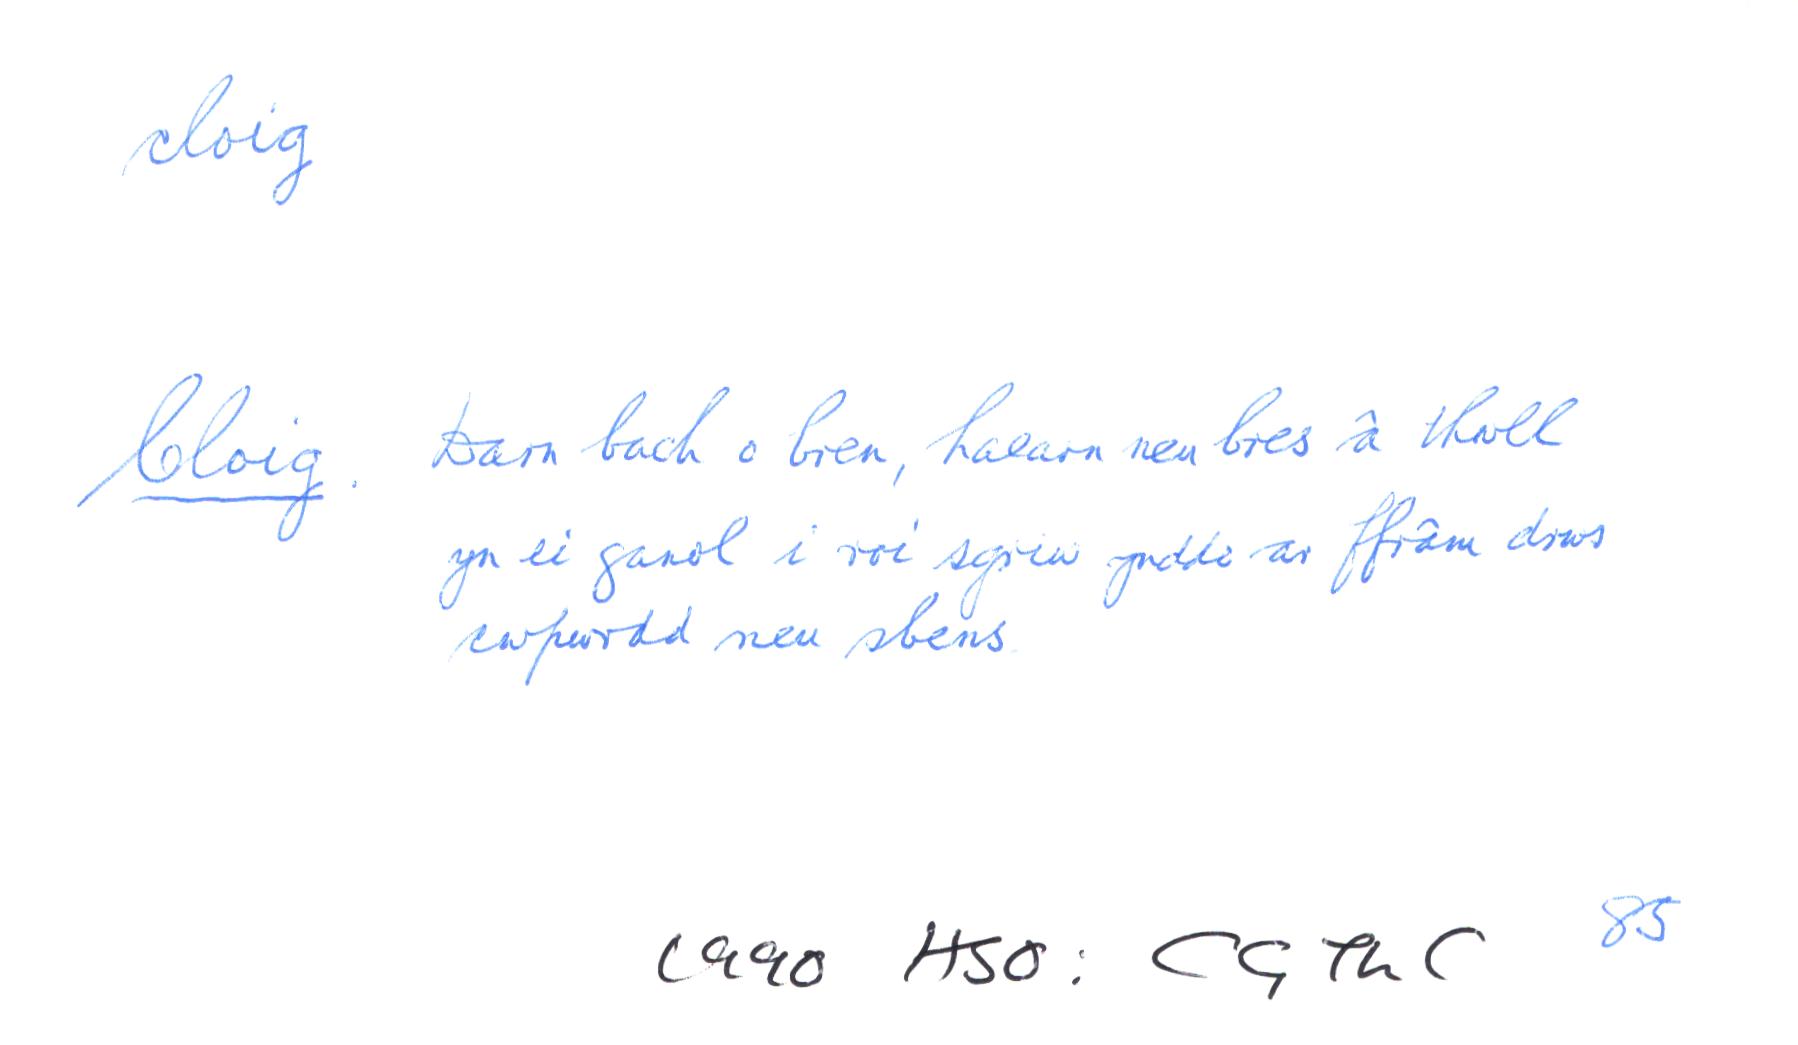 cloig
Cloig. Darn bach o bren, haearn neu bres â thwll
yn ei ganol i roi sgriw ynddo ar ffrâm drws
cwpwrdd neu sbens.
1990 HSO: CGThC 85